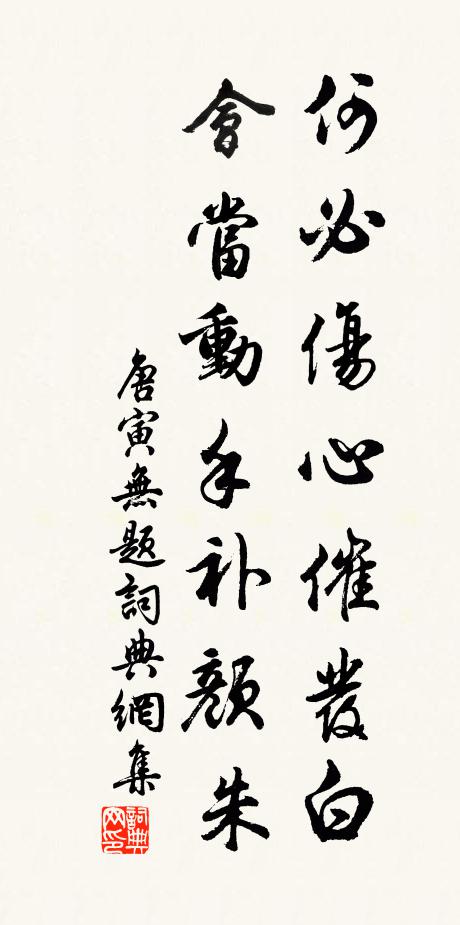 何必傷心催發白
會當動手补顏朱
唐寅無題詞典網集
詞典网印